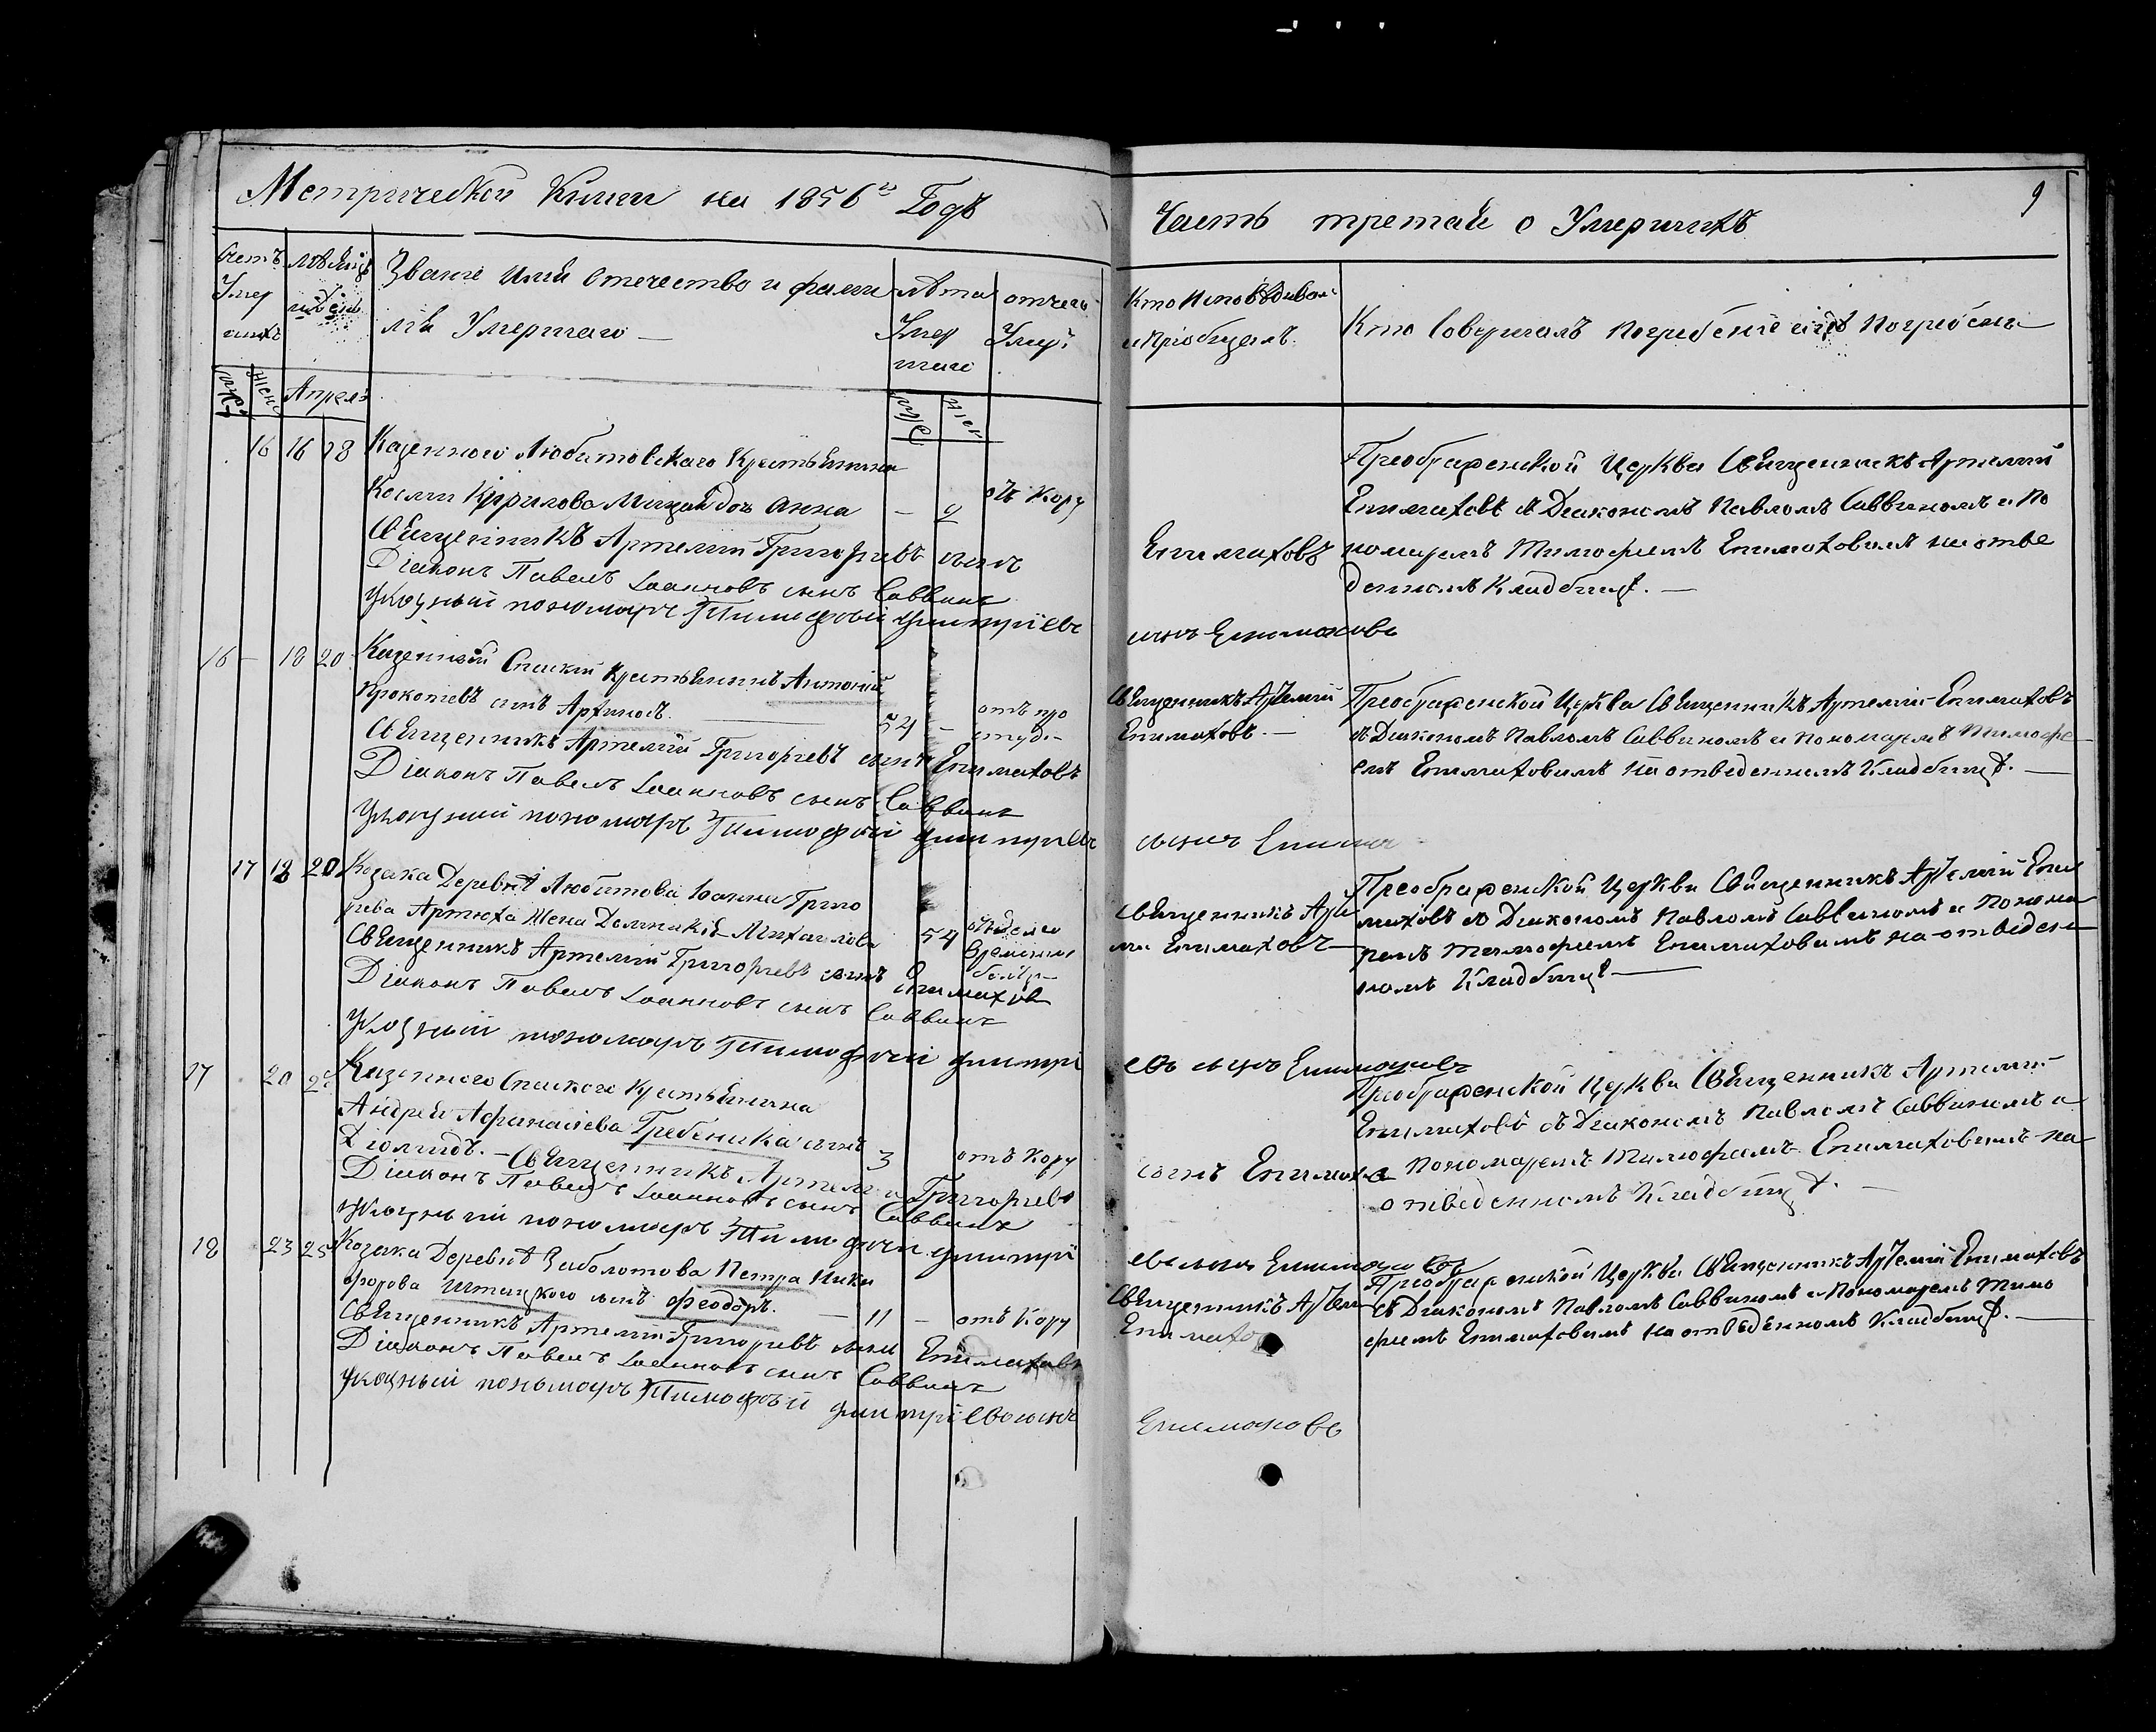 Метрической Книги на 1856й Годъ
Часть третая о Умершихъ
9
Счетъ Умер шихъ
Мѣсяцъ и День
Званіе имя Отечество и фами
лія Умершаго —
Лѣта Умер шаго
отчего Умер.
Кто Исповѣдивал
и Пріобщалъ.
Кто Совершалъ Погребеніе и гдѣ Погребены
Муж Жен Апрель
Муж Жен
16 16 18 Казенного Любитовскаго Крестьянина
Космы Кирилова дочь Анна — 9 отъ Кору
Священникъ Артемій Григорьевъ сынъ
Епиматовъ
Діаконъ Павелъ Іоанновъ сынъ Саввинъ
Указный пономарь Тимофѣй Дмитріевъ
сынъ Епиматовъ
Преображенской Церкви Священникъ Артемій
Епиматовъ съ Діакономъ Павломъ Саввиномъ и По
номаремъ Тимофеемъ Епиматовымъ на отве
денномъ Кладбищѣ. —
16 — 18 20 Казенный Спаскій Крестьянинъ Антоній
Прокопіевъ сынъ 54 — отъ про
студи
Священникъ Артемій Григорьевъ сынъ Епиматовъ
Діаконъ Павелъ Іоанновъ сынъ Саввинъ
Указный пономарь Тимофѣй Дмитріевъ
сынъ
Священникъ Артемій
Епиматовъ. —
Преображенской Церкви Священникъ Артемій Епиматовъ
съ Діакономъ Павломъ Саввиномъ и Пономаремъ Тимофе
емъ Епиматовымъ на отведенномъ Кладбищѣ. —
17 18 20 Козака Деревнѣ Любитова Іоанна Григо
рева Артюха Жена Домникія Михаилова 54
Священникъ Артемій Григорьевъ сынъ Епиматовъ
Діаконъ Павелъ Іоанновъ сынъ Саввинъ
Указный пономарь Тимофѣй Дмитрі
евъ сынъ Епиматовъ
Священникъ Арте
мій Епиматовъ —
Преображенской Церкви Священникъ Артемій Епи
матовъ съ Діакономъ Павломъ Саввиномъ и Понома
ремъ Тимофеемъ Епиматовымъ на отведен
номъ Кладбищѣ —
17 20 Казенного Спаского Крестьянина
Андрея Афанасіева Гребеника сынъ
Діомидъ. — 3 отъ Кору
Священникъ Артемій Григорьевъ
сынъ Епиматовъ
Діаконъ Павелъ Іоанновъ сынъ Саввинъ
Указный пономарь Тимофѣй Дмитрі
евъ сынъ Епиматовъ
Преображенской Церкви Священникъ Артемій
Епиматовъ съ Діакономъ Павломъ Саввиномъ и
Пономаремъ Тимофеемъ Епиматовымъ на
отведенномъ Кладбищѣ. —
18 23 25 Козака Деревнѣ Заболотова Петра Ники
форова сынъ Феодоръ. — 11 — отъ Кору
Священникъ Артемій Григорьевъ сынъ Епиматовъ
Діаконъ Павелъ Іоанновъ сынъ Саввинъ
Указный пономарь Тимофѣй Дмитріевъ сынъ
Епиматовъ
Священникъ Артемій
Преображенской Церкви Священникъ Артемій Епиматовъ
съ Діакономъ Павломъ Саввиномъ и Пономаремъ Тимо
феемъ Епиматовымъ на отведенномъ Кладбищѣ. —